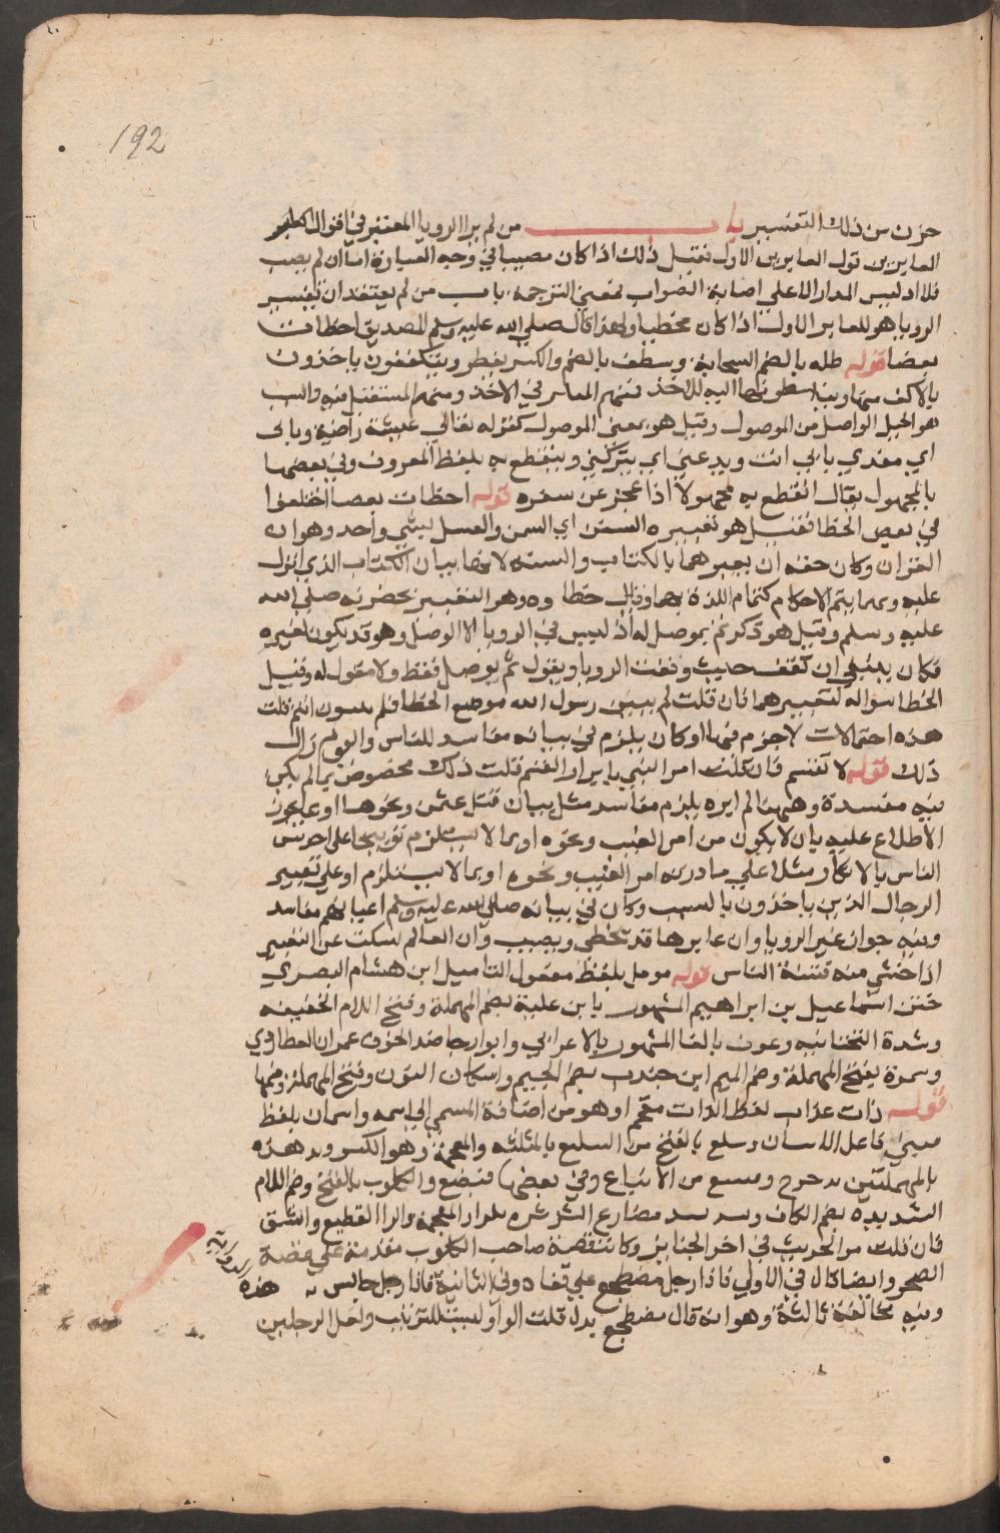 192
حزن من ذلك التفسير باب من لم ير الرويا المعتبر في اقوال
العابرين قول العابر الاول فقيل ذلك اذا كان مصيبا في وجه العبارة اما ان لم يصب
فلا اذ ليس المدار الا علي اصابة الصواب فمعني الترجمة باب من لم يعتقد ان تفسير
الرويا هو للعابر الاول اذا كان مخطيا ولهذا قال صلي الله عليه وسلم للصديق اخطات
بعضا قوله ظلة بالضم السحابة وينطف بالضم والكسر يقطر ويتكففون ياخذون
بالاكف منها وبينا اليه للاخذ فمنهم المكثر في الاخذ ومنهم المستقل فيه والسبب
هو الحبل الواصل من الموصول وقيل هو بمعني الموصول كقوله تعالي عيشة راضية وبابي
اي مفدي بابي انت ويدعني اي يتركني وينقطع به بلفظ المعروف وفي بعضها
بالمجهول يقال انقطع به مجهولا اذا عجز عن سفره قوله اخطات بعضا اختلفوا
في بعض الخطا فقيل هو تفسيره السمن اي السمن والعسل بشي واحد وهو ان
القران وكان حقه ان يعبرهما بالكتاب والسنه لانها بيان الكتاب الذي انزل
عليه وبهما يتم الاحكام كتمام اللذة بهما وقيل خطا وه وهو التعبير بحضرته صلي الله
عليه وسلم وقيل هو ذكر ثم يوصل له اذ ليس في الرويا الا الوصل وهو قد يكون لغيره
فكان ينبغي ان يقف حيث وقفت الرويا ويقول ثم يوصل فقط ولا يقول له وقيل
الخطا سواله لتعبيرهما فان قلت لم يبين رسول الله موضع الخطا فلم انتم قلت
هذه احتمالات لا جزم فيها او كان يلزم في بيانه مفاسد للناس واليوم زال
ذلك قوله لا تقسم فان قلت امر النبي بابرار القسم قلت ذلك مخصوص بما لم يكن
فيه مفسدة وههنا لم ابره يلزم مفاسد مثل بيان قتل عثمن ونحوها او بما يجوز
الاطلاع عليه بان لا يكون من امر الغيب ونحوه او بما لا يستلزم توبيخا علي احد بين
الناس بالانكار مثلا علي مبادرته امر الغيب ونحوه او بما لا يستلزم او علي تعبير
الرجال الذين ياخذون بالسبب وكان في بيانه صلي الله عليه وسلم اعيانهم مفاسد
وفيه جواز عبر الرويا وان عابرها قد يخطي ويصيب وان العالم يسكت عن التعبير
اذا خشي منه فتنة الناس قوله مومل بلفظ مفعول التاميل ابن هشام البصري
ختن اسماعيل بن ابراهيم المشهور بابن علية بضم المهملة وفتح اللام الخفيفه
وشدة التحتانيه وعوف بالفا المشهور بالاعرابي وابو رجا ضد الخوف عمران العطاردي
وسمرة بفتح المهملة وضم الميم ابن جندب بضم الجيم واسكان النون وفتح المهملة وضمها
قوله ذات غداة لفظ الذات مقحم او هو من اضافة المسمي الي اسمه واتيان بلفظ
مبني فاعل الاتيان ويثلغ بالفتح من الثلغ بالمثلثه والمعجمة وهو الكسر ويدهده
بالمهملتين يدحرج ويتبع من الاتباع وفي بعضها فيتبع والكلوب بالفتح وضم اللام
الشديدة بضم الكاف ويشرشر مضارع الشرشره بتكرار المعجمة والرا القطيع والشق
فان قلت مر الحديث في اخر الجنايز وكانت قصة صاحب الكلوب مقدمة علي قصة
الصخر وايضا قال في الاولي فاذا رجل مضطجع علي قفاه وفي الثانية فاذا رجل جالس هذه
وفيه مخالفة ثالثة وهو انه قال مضطجع بدل قلت الواو ليست للترتيب ولعل الرجلين